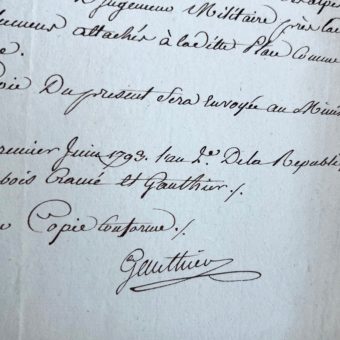 Ingenieur Militaire près la
attachés à laditte Place comme
Du présent Sera envoyée au Mini
remier Juin 1793. l'an 2e. De la Republi
bois Crancé et Gauthier ./.
Copie Conforme ./.
Gauthier